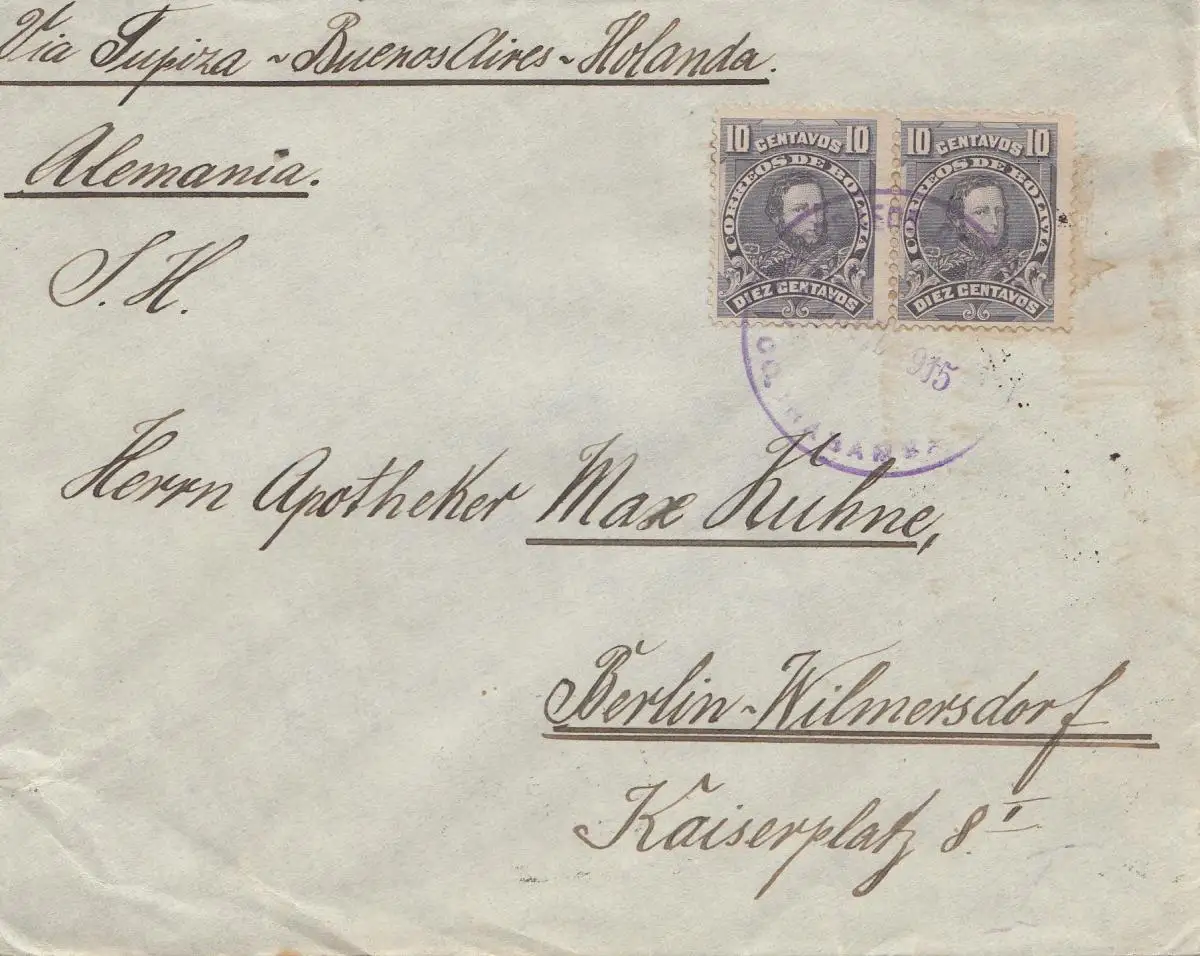 Via Tupiza ~ Buenos Aires ~ Holanda.
Alemania.
S. H.
10 CENTAVOS 10
CORREOS DE BOLIVIA
DIEZ CENTAVOS
10 CENTAVOS 10
CORREOS DE BOLIVIA
DIEZ CENTAVOS
915
COCHABAMBA
Herrn Apotheker Max Kuhne,
Berlin-Wilmersdorf
Kaiserplatz 8 II